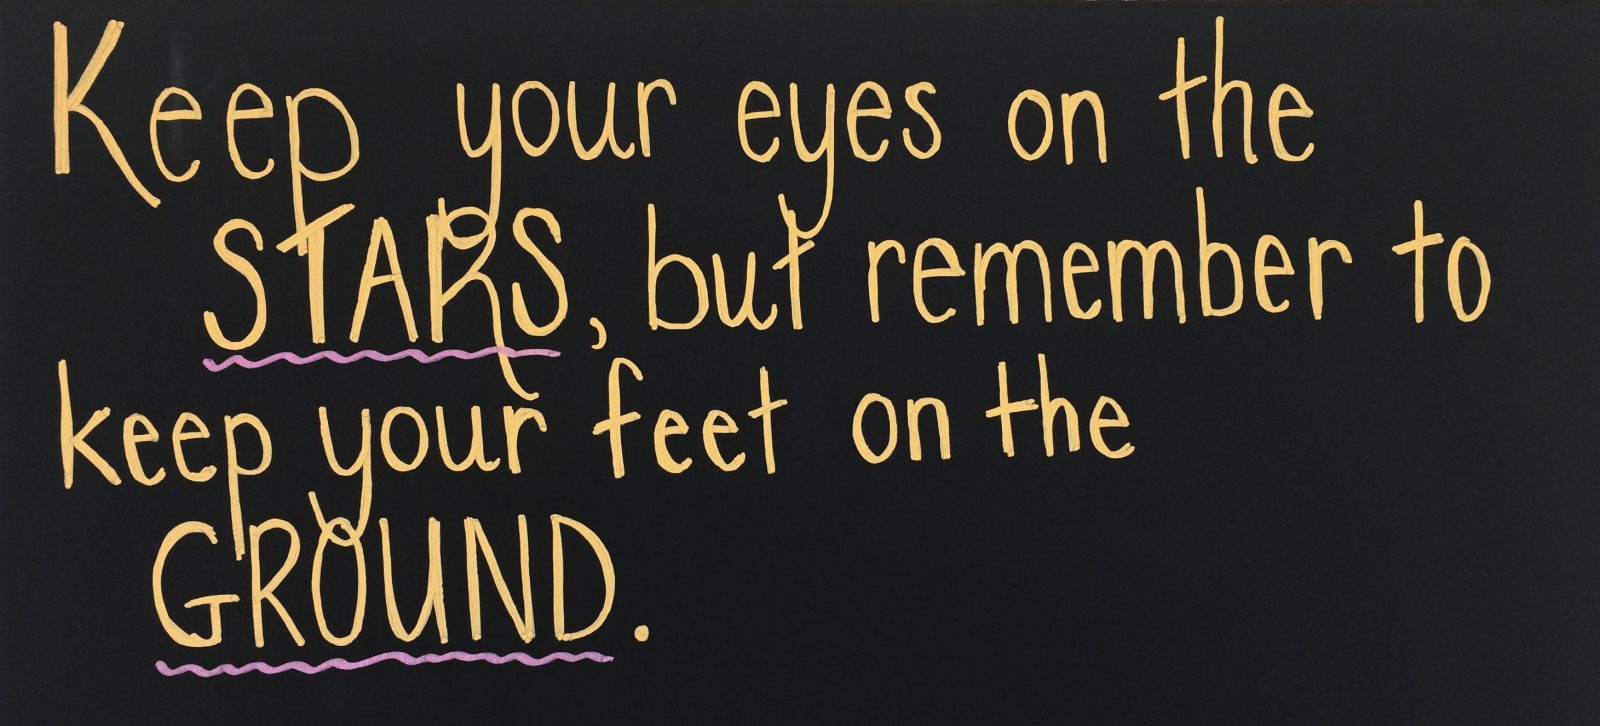 Keep your eyes on the
STARS, but remember to
keep your feet on the
GROUND.